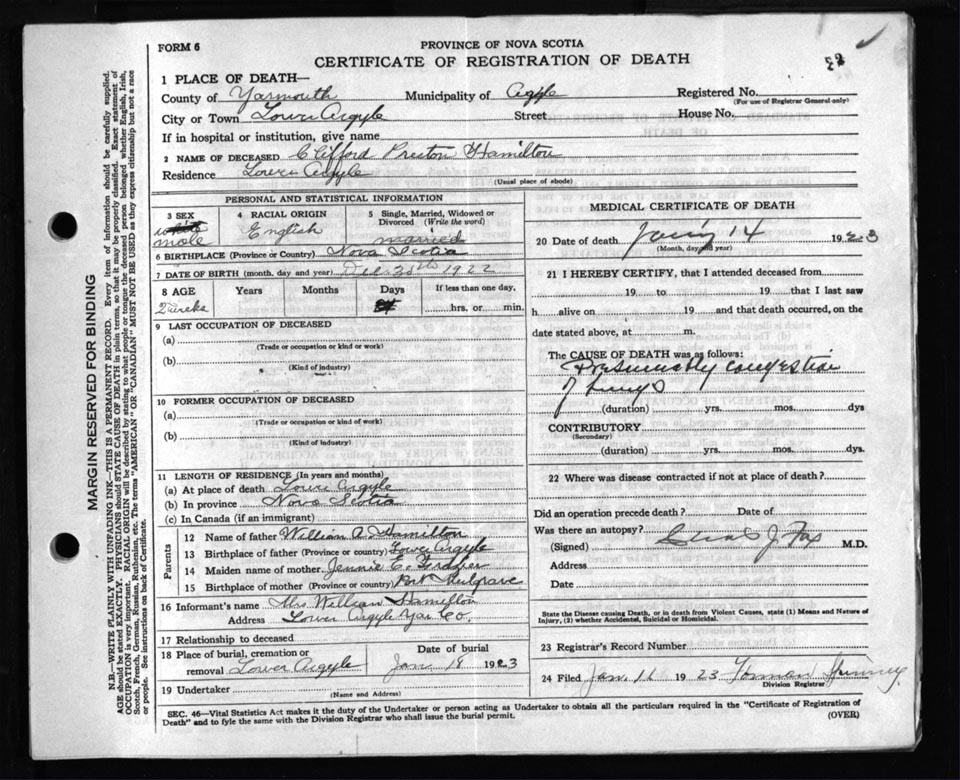 FORM 6
PROVINCE OF NOVA SCOTIA
CERTIFICATE OF REGISTRATION OF DEATH
1 PLACE OF DEATH—
County of Yarmouth Municipality of Argyle Registered No.
(For use of Registrar General only)
City or Town Lower Argyle Street House No.
If in hospital or institution, give name
2 NAME OF DECEASED Clifford Preston Hamilton
Residence Lower Argyle
(Usual place of abode)
PERSONAL AND STATISTICAL INFORMATION
3 SEX
white
male
4 RACIAL ORIGIN
English
5 Single, Married, Widowed or Divorced (Write the word)
married
6 BIRTHPLACE (Province or Country) Nova Scotia
7 DATE OF BIRTH (month, day and year) Dec 1922
8 AGE Years Months Days If less than one day,
2 weeks hrs. or min.
9 LAST OCCUPATION OF DECEASED
(a)
(Trade or occupation or kind or work)
(b)
(Kind of industry)
10 FORMER OCCUPATION OF DECEASED
(a)
(Trade or occupation or kind or work)
(b)
(Kind of industry)
11 LENGTH OF RESIDENCE (In years and months)
(a) At place of death Lower Argyle
(b) In province Nova Scotia
(c) In Canada (if an immigrant)
Parents
12 Name of father William A. Hamilton
13 Birthplace of father (Province or country) Lower Argyle
14 Maiden name of mother Jennie C.
15 Birthplace of mother (Province or country) Port Mulgrave
16 Informant's name Mrs William Hamilton
Address Lower Argyle Yar Co.
17 Relationship to deceased
18 Place of burial, cremation or removal Lower Argyle
Date of burial
Jan 18 1923
19 Undertaker
(Name and Address)
MEDICAL CERTIFICATE OF DEATH
20 Date of death 14 1923
(Month, day and year)
21 I HEREBY CERTIFY, that I attended deceased from
19 to 19 that I last saw
h alive on 19 and that death occurred, on the
date stated above, at m.
The CAUSE OF DEATH was as follows:
Presumably congestion
of lungs
(duration) yrs. mos. dys
CONTRIBUTORY
(Secondary)
(duration) yrs. mos. dys.
22 Where was disease contracted if not at place of death?
Did an operation precede death? Date of
Was there an autopsy?
(Signed) J. Fox M.D.
Address
Date
State the Disease causing Death, or in death from Violent Causes, state (1) Means and Nature of Injury, (2) whether Accidental, Suicidal or Homicidal.
23 Registrar's Record Number
24 Filed Jan. 1923
Division Registrar
SEC. 46—Vital Statistics Act makes it the duty of the Undertaker or person acting as Undertaker to obtain all the particulars required in the "Certificate of Registration of
Death" and to fyle the same with the Division Registrar who shall issue the burial permit.
(OVER)
MARGIN RESERVED FOR BINDING
N.B.—WRITE PLAINLY WITH UNFADING INK—THIS IS A PERMANENT RECORD. Every item of information should be carefully supplied.
AGE should be stated EXACTLY. PHYSICIANS should STATE CAUSE OF DEATH in plain terms, so that it may be properly classified. Exact statement of
OCCUPATION is very important. RACIAL ORIGIN will be described by stating to what people or tongue the deceased person belonged whether English, Irish,
Scotch, French, German, Russian, Ruthenian, etc. The terms "AMERICAN" OR "CANADIAN" MUST NOT BE USED as they express citizenship but not a race
or people. See instructions on back of Certificate.